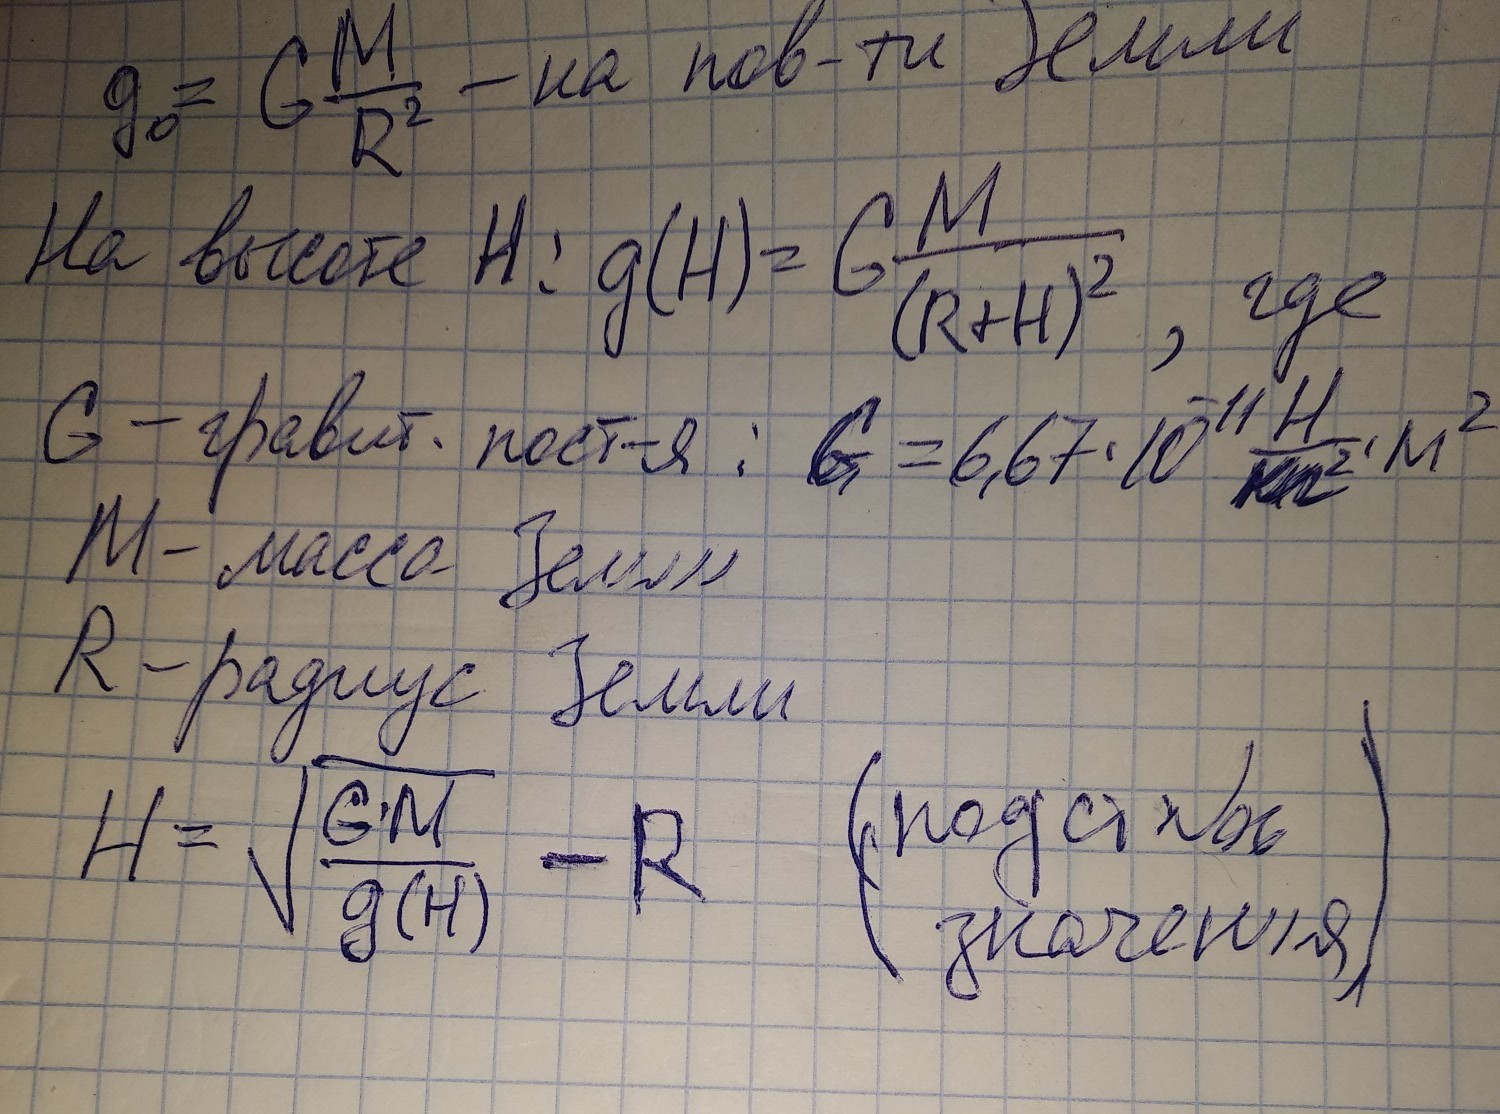 g₀ = G M/R² – на пов-ти Земли
На высоте H: g(H) = G M/(R+H)², где
G – гравит. пост-я: G = 6,67·10⁻¹¹ Н/кг²·м²
M – масса Земли
R – радиус Земли
H = √(G·M/g(H)) – R (подставь
значения)